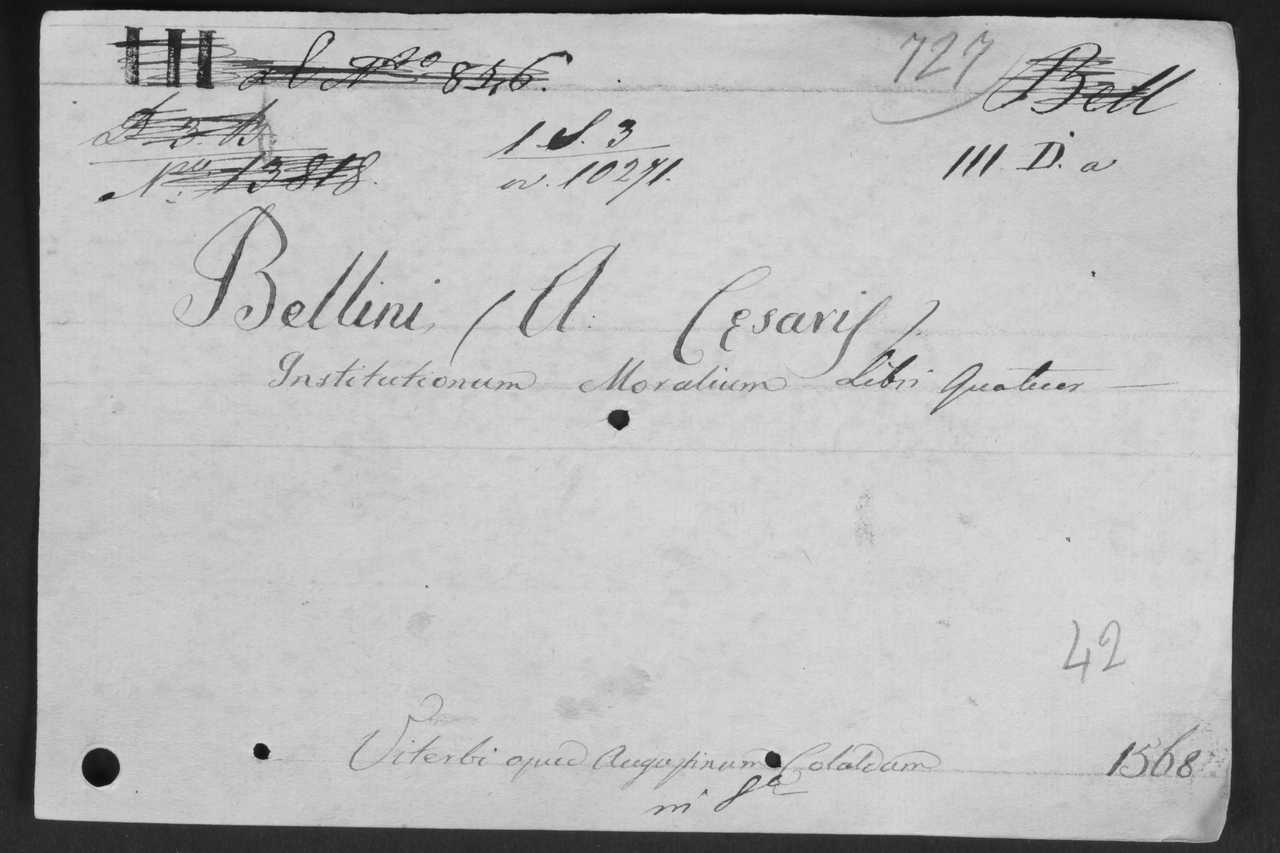 III al Nro 846. 727 Bell
1 S. 3 III D. a
Nro 13818. 10271.
Bellini, (A. Cesaris).
Institutionum Moralium Libri Quatuor —
42
Viterbi apud Augustinum Colaldum 1568
in 8o